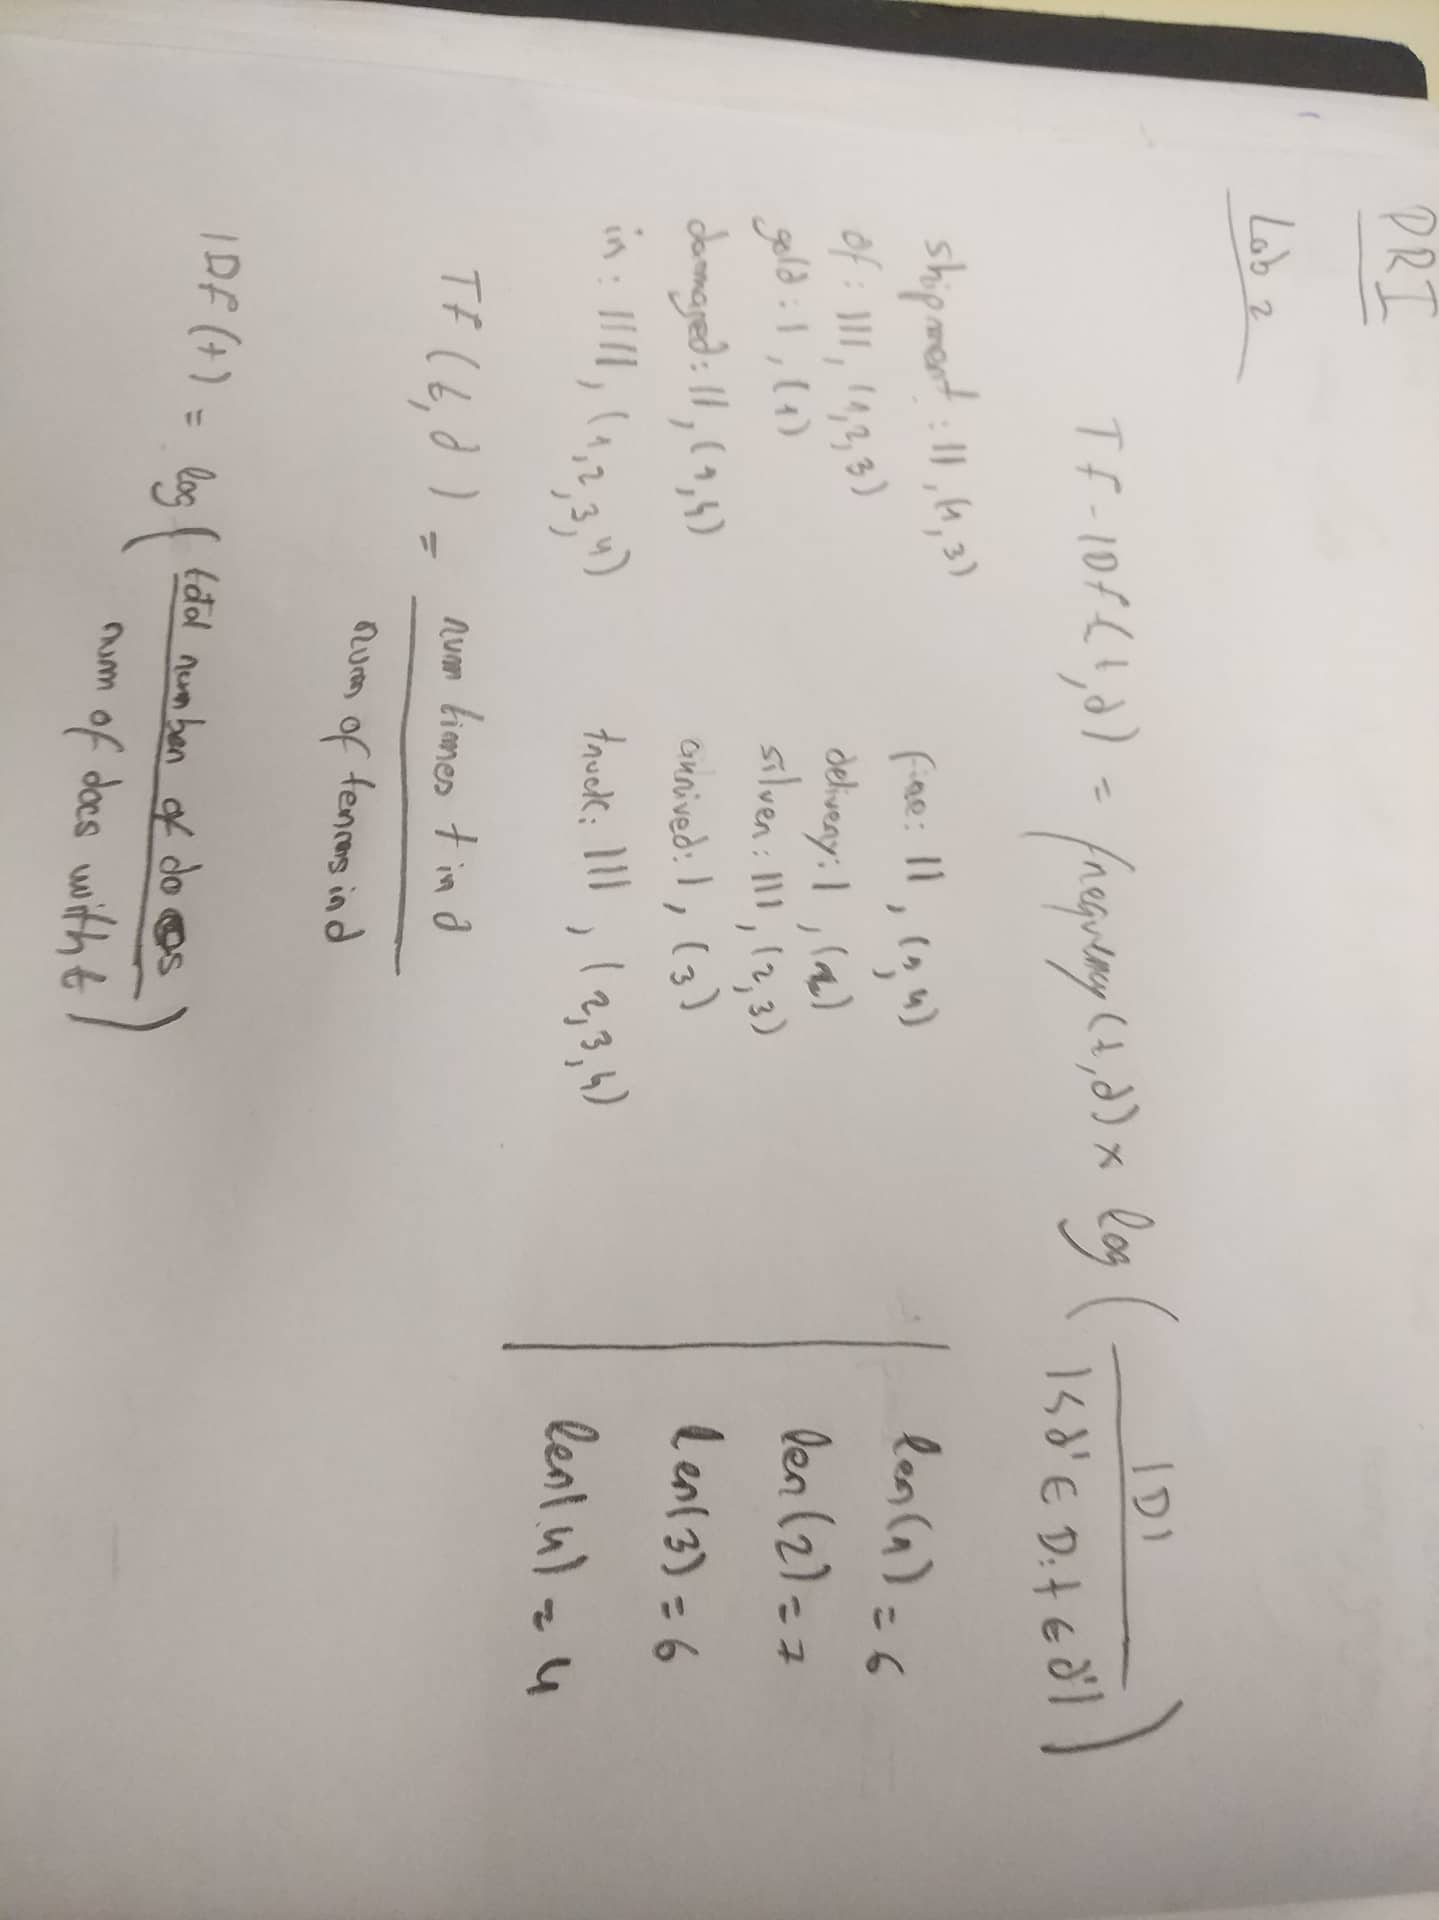 PRI
Lab 2
Tf-IDf(t,d) = frequency(t,d) x log( |D| / |{d' ∈ D: t ∈ d'| )
shipment: ||, (1,3)
of: |||, (1,2,3)
gold: |, (1)
damaged: ||, (1,4)
in: ||||, (1,2,3,4)
fire: ||, (1,4)
delivery: |, (2)
silver: |||, (2,3)
arrived: |, (3)
truck: |||, (2,3,4)
len(1) = 6
len(2) = 7
len(3) = 6
len(4) = 4
Tf(t,d) = num times t in d / num of terms in d
IDf(t) = log( total number of docs / num of docs with t )